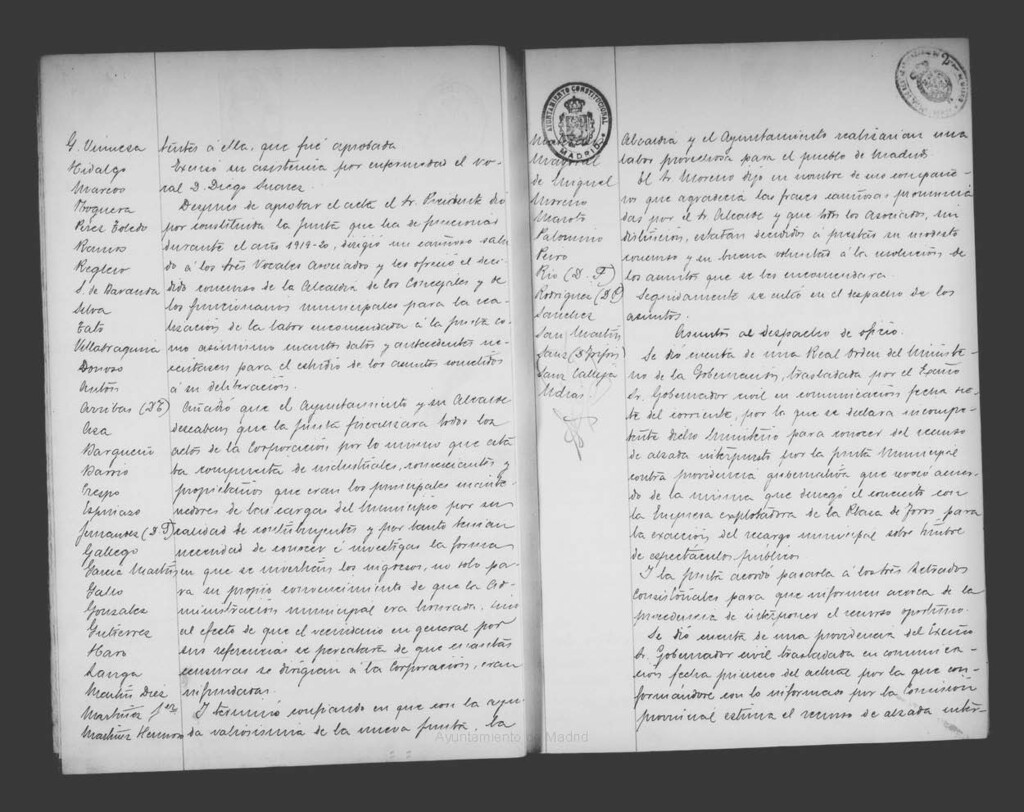 G. Vinuesa
Hidalgo
Marcos
Noguera
Pérez Toledo
Ramos
Reglero
S. de Baranda
Silva
Tato
Villabragima
Donoso
Antón
Arribas (D E)
Asa
Barqueño
Barrio
Crespo
Espinazo
Fernandez (D F)
Gallego
García Martín
Galeo
Gonzalez
Gutierrez
Haro
Langa
Martín Diez
Martinez
Martinez
á ella, que fué aprobada
Excusó su asistencia por enfermedad el Vo-
cal D. Diego Suarez.
Despues de aprobar el acta el Sr. Presidente dió
por constituida la Junta que ha de funcionar
durante el año 1919-20, dirigió un cariñoso salu-
do á los tres Vocales Asociados y les ofreció el deci-
dido concurso de la Alcaldia de los Concejales y de
los funcionarios municipales para la rea-
lización de la labor encomendada á la Junta co-
mo asimismo cuantos datos y antecedentes ne-
cesitasen para el estudio de los asuntos sometidos
á su deliberación.
Añadió que el Ayuntamiento y su Alcalde
deseaban que la Junta fiscalizara todos los
actos de la Corporación por lo mismo que esta-
ba compuesta de industriales, comerciantes y
propietarios que eran los principales
de las cargas del Municipio por su
calidad de contribuyentes y por tanto tenian
necesidad de conocer é investigar la forma
en que se invertian los ingresos, no solo pa-
ra su propio convencimiento de que la ad-
ministración municipal era honrada, sino
al efecto de que el vecindario en general por
sus referencias se percatara de que cuantas
censuras se dirigian á la Corporación, eran
infundadas.
I terminó confiando en que con la ayu-
da valiosisima de la nueva Junta, la
AYUNTAMIENTO CONSTITUCIONAL
MADRID
Mayoral
de Miguel
Moreno
Maroto
Palomino
Peiro
Rio (D. F)
Rodriguez (D C)
Sanchez
San Martín
Sanz
Sanz Calleja
Udias.
Alcaldia y el Ayuntamiento realizarian una
labor provechosa para el pueblo de Madrid.
El Sr. Moreno dijo en nombre de sus compañe-
ros que agradecia las frases cariñosas pronuncia-
das por el Sr. Alcalde y que todos los asociados, sin
distinción, estaban decididos á prestar su modesto
concurso y su buena voluntad á la resolución de
los asuntos que se les encomendara.
Seguidamente se entró en el despacho de los
asuntos.
Asuntos al despacho de oficio.
Se dió cuenta de una Real Orden del Ministe-
rio de la Gobernación, trasladada por el Excmo
Sr. Gobernador civil en comunicación fecha sie-
te del corriente, por la que se declara incompe-
tente dicho Ministerio para conocer del recurso
de alzada interpuesto por la Junta Municipal
contra providencia gubernativa que revocó acuer-
do de la misma que denegó el concierto con
la Empresa explotadora de la Plaza de Toros para
la exacción del recargo municipal sobre timbre
de espectáculos públicos
I la Junta acordó pasarla á los tres Letrados
Consistoriales para que informen acerca de la
procedencia de interponer el recurso oportuno.
Se dió cuenta de una providencia del Excmo
Sr. Gobernador civil trasladada en comunica-
ción fecha primero del actual por la que con-
formándose con lo informado por la Comisión
provincial estima el recurso de alzada inter-
Ayuntamiento de Madrid